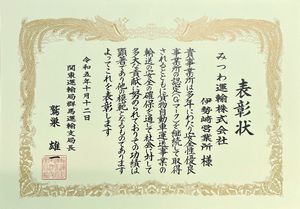 表彰状
みつわ運輸株式会社
伊勢崎営業所 様
貴事業所は多年にわたり安全性優良
事業所の認定(Gマーク)を継続して取得
されるとともに貨物自動車運送事業の
輸送の安全の確保を通して社会に対して
多大な貢献に努められておりその功績は
顕著であり他の模範となるものであります
よってこれを表彰します
令和五年十月十二日
関東運輸局群馬運輸支局長
鷲巣 雄一